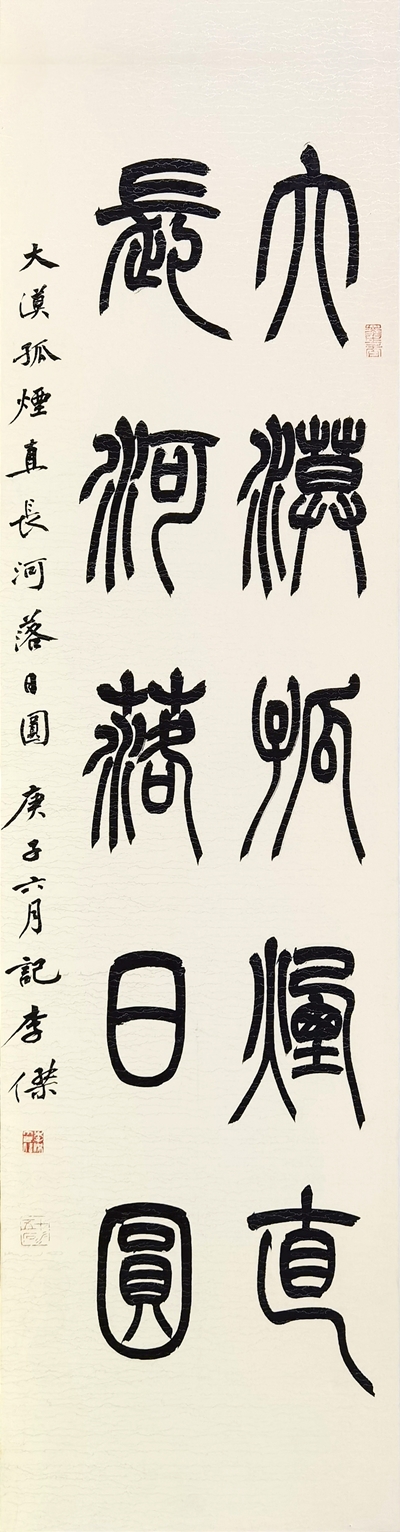 大漠孤煙直
長河落日圓
大漠孤煙直長河落日圓 庚子六月記 李傑